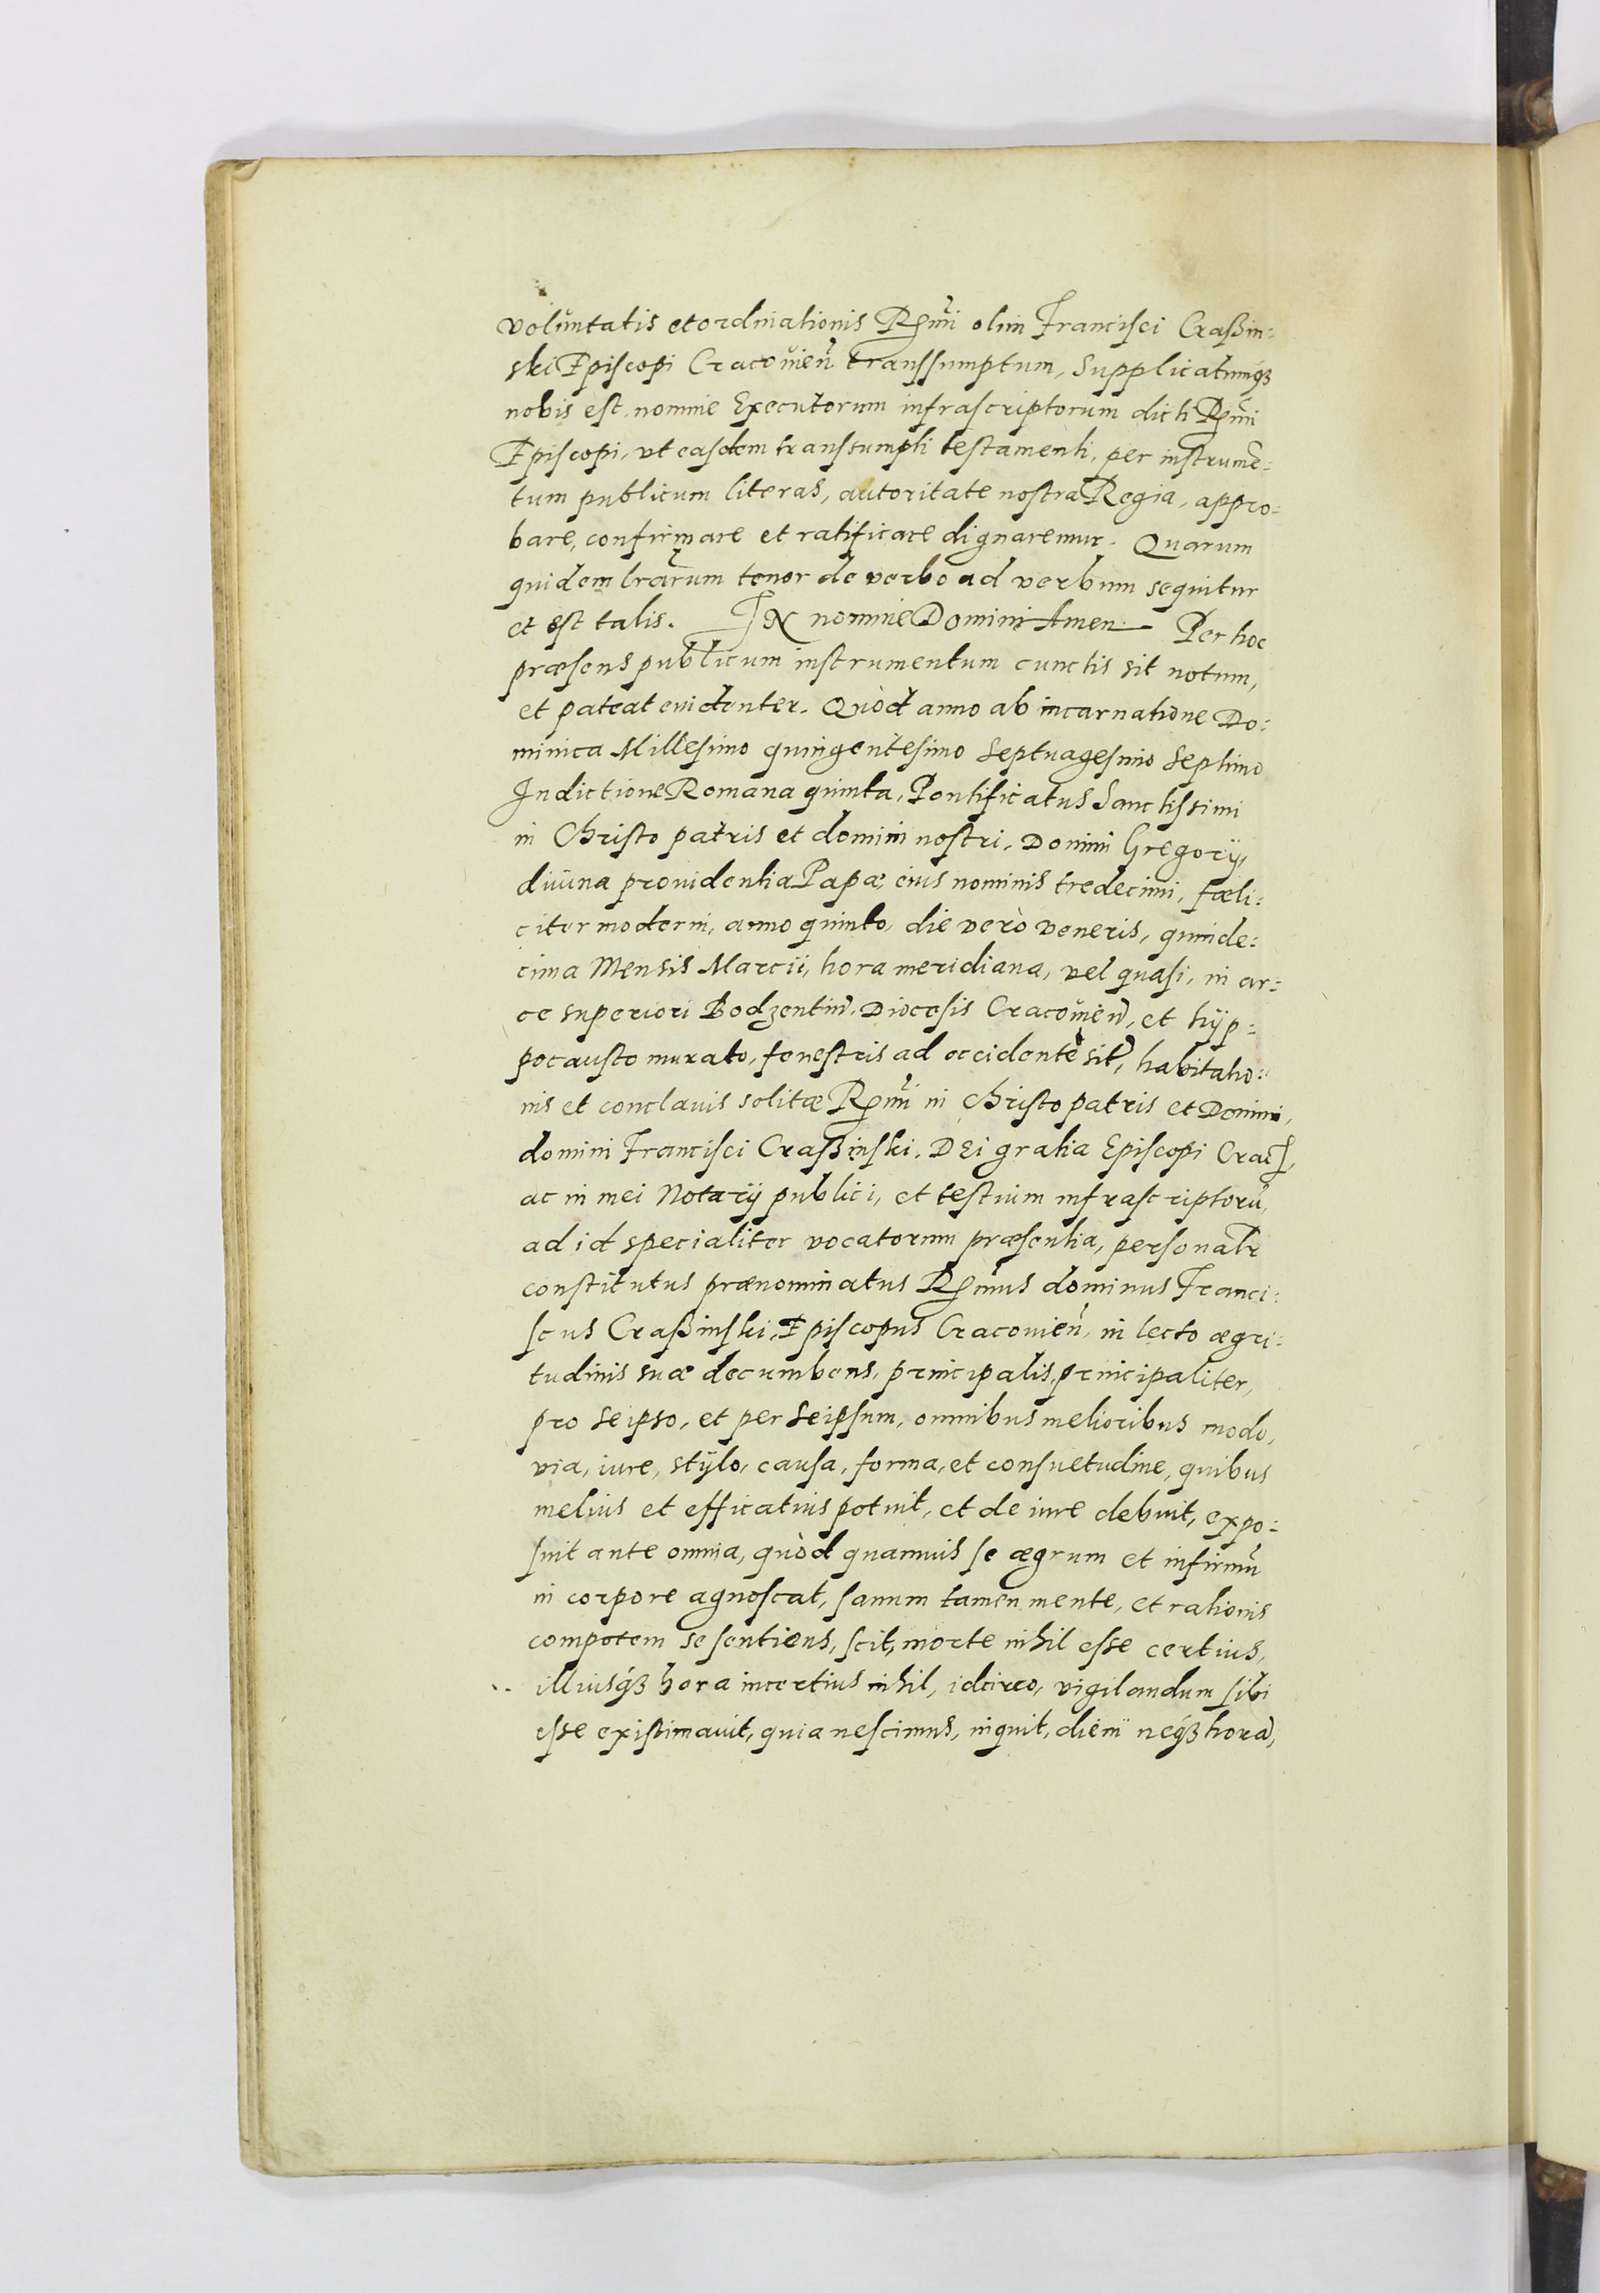 voluntatis et ordinationis Rmi olim Francisci Craßin:
ski Episcopi Cracovien̄ transsumptum, Supplicatumqȝ
nobis est, nomine Executorum infrascriptorum dicti Rmi
Episcopi, ut easdem transsumpti testamenti, per instrumē:
tum publicum literas, autoritate nostra Regia, appro:
bare, confirmare et ratificare dignaremur. Quarum
quidem lrarum tenor de verbo ad verbum sequitur
et est talis. IN nomine Domini Amen. Per hoc
præsens publicum instrumentum cunctis sit notum,
et pateat euidenter. Quòd anno ab incarnatione Do:
minica Millesimo quingentesimo Septuagesimo Septimo
Indictione Romana quinta, Pontificatus Sanctissimi
in Christo patris et domini nostri, Domini Gregorij,
diuina prouidentia Papæ, eius nominis tredecimi, fæli:
citer moderni, anno quinto, die verò veneris, quinde:
cima Mensis Marcii, hora meridiana, vel quasi, in ar:
ce superiori Bodzentin̄, Diocesis Cracovien̄, et hÿp:
pocausto murato, fenestris ad occidentē sit̄, habitatio:
nis et conclauis solitæ Rmi in Christo patris et Domini,
domini Francisci Craßinski, DEi gratia Episcopi Crac̄,
ac in mei Notarij publici, et testium infrascriptorū,
ad id specialiter vocatorum præsentia, personalr
constitutus prænominatus Rmus dominus Franci:
scus Craßinski, Episcopus Cracouien̄, in lecto ægri:
tudinis suæ decumbens, principalis, principaliter,
pro seipso, et per seipsum, omnibus melioribus modo,
via, iure, stÿlo, causa, forma, et consuetudine, quibus
melius et efficatius potuit, et de iure debuit, expo:
suit ante omnia, quòd quamuis se ægrum et infirmū
in corpore agnoscat, sanum tamen mente, et rationis
compotem se sentiens, scit, morte nihil esse certius,
illiusqȝ hora incertius nihil, idcirco, vigilandum sibi
esse existimauit, quia nescimus, inquit, diem neqȝ horā,